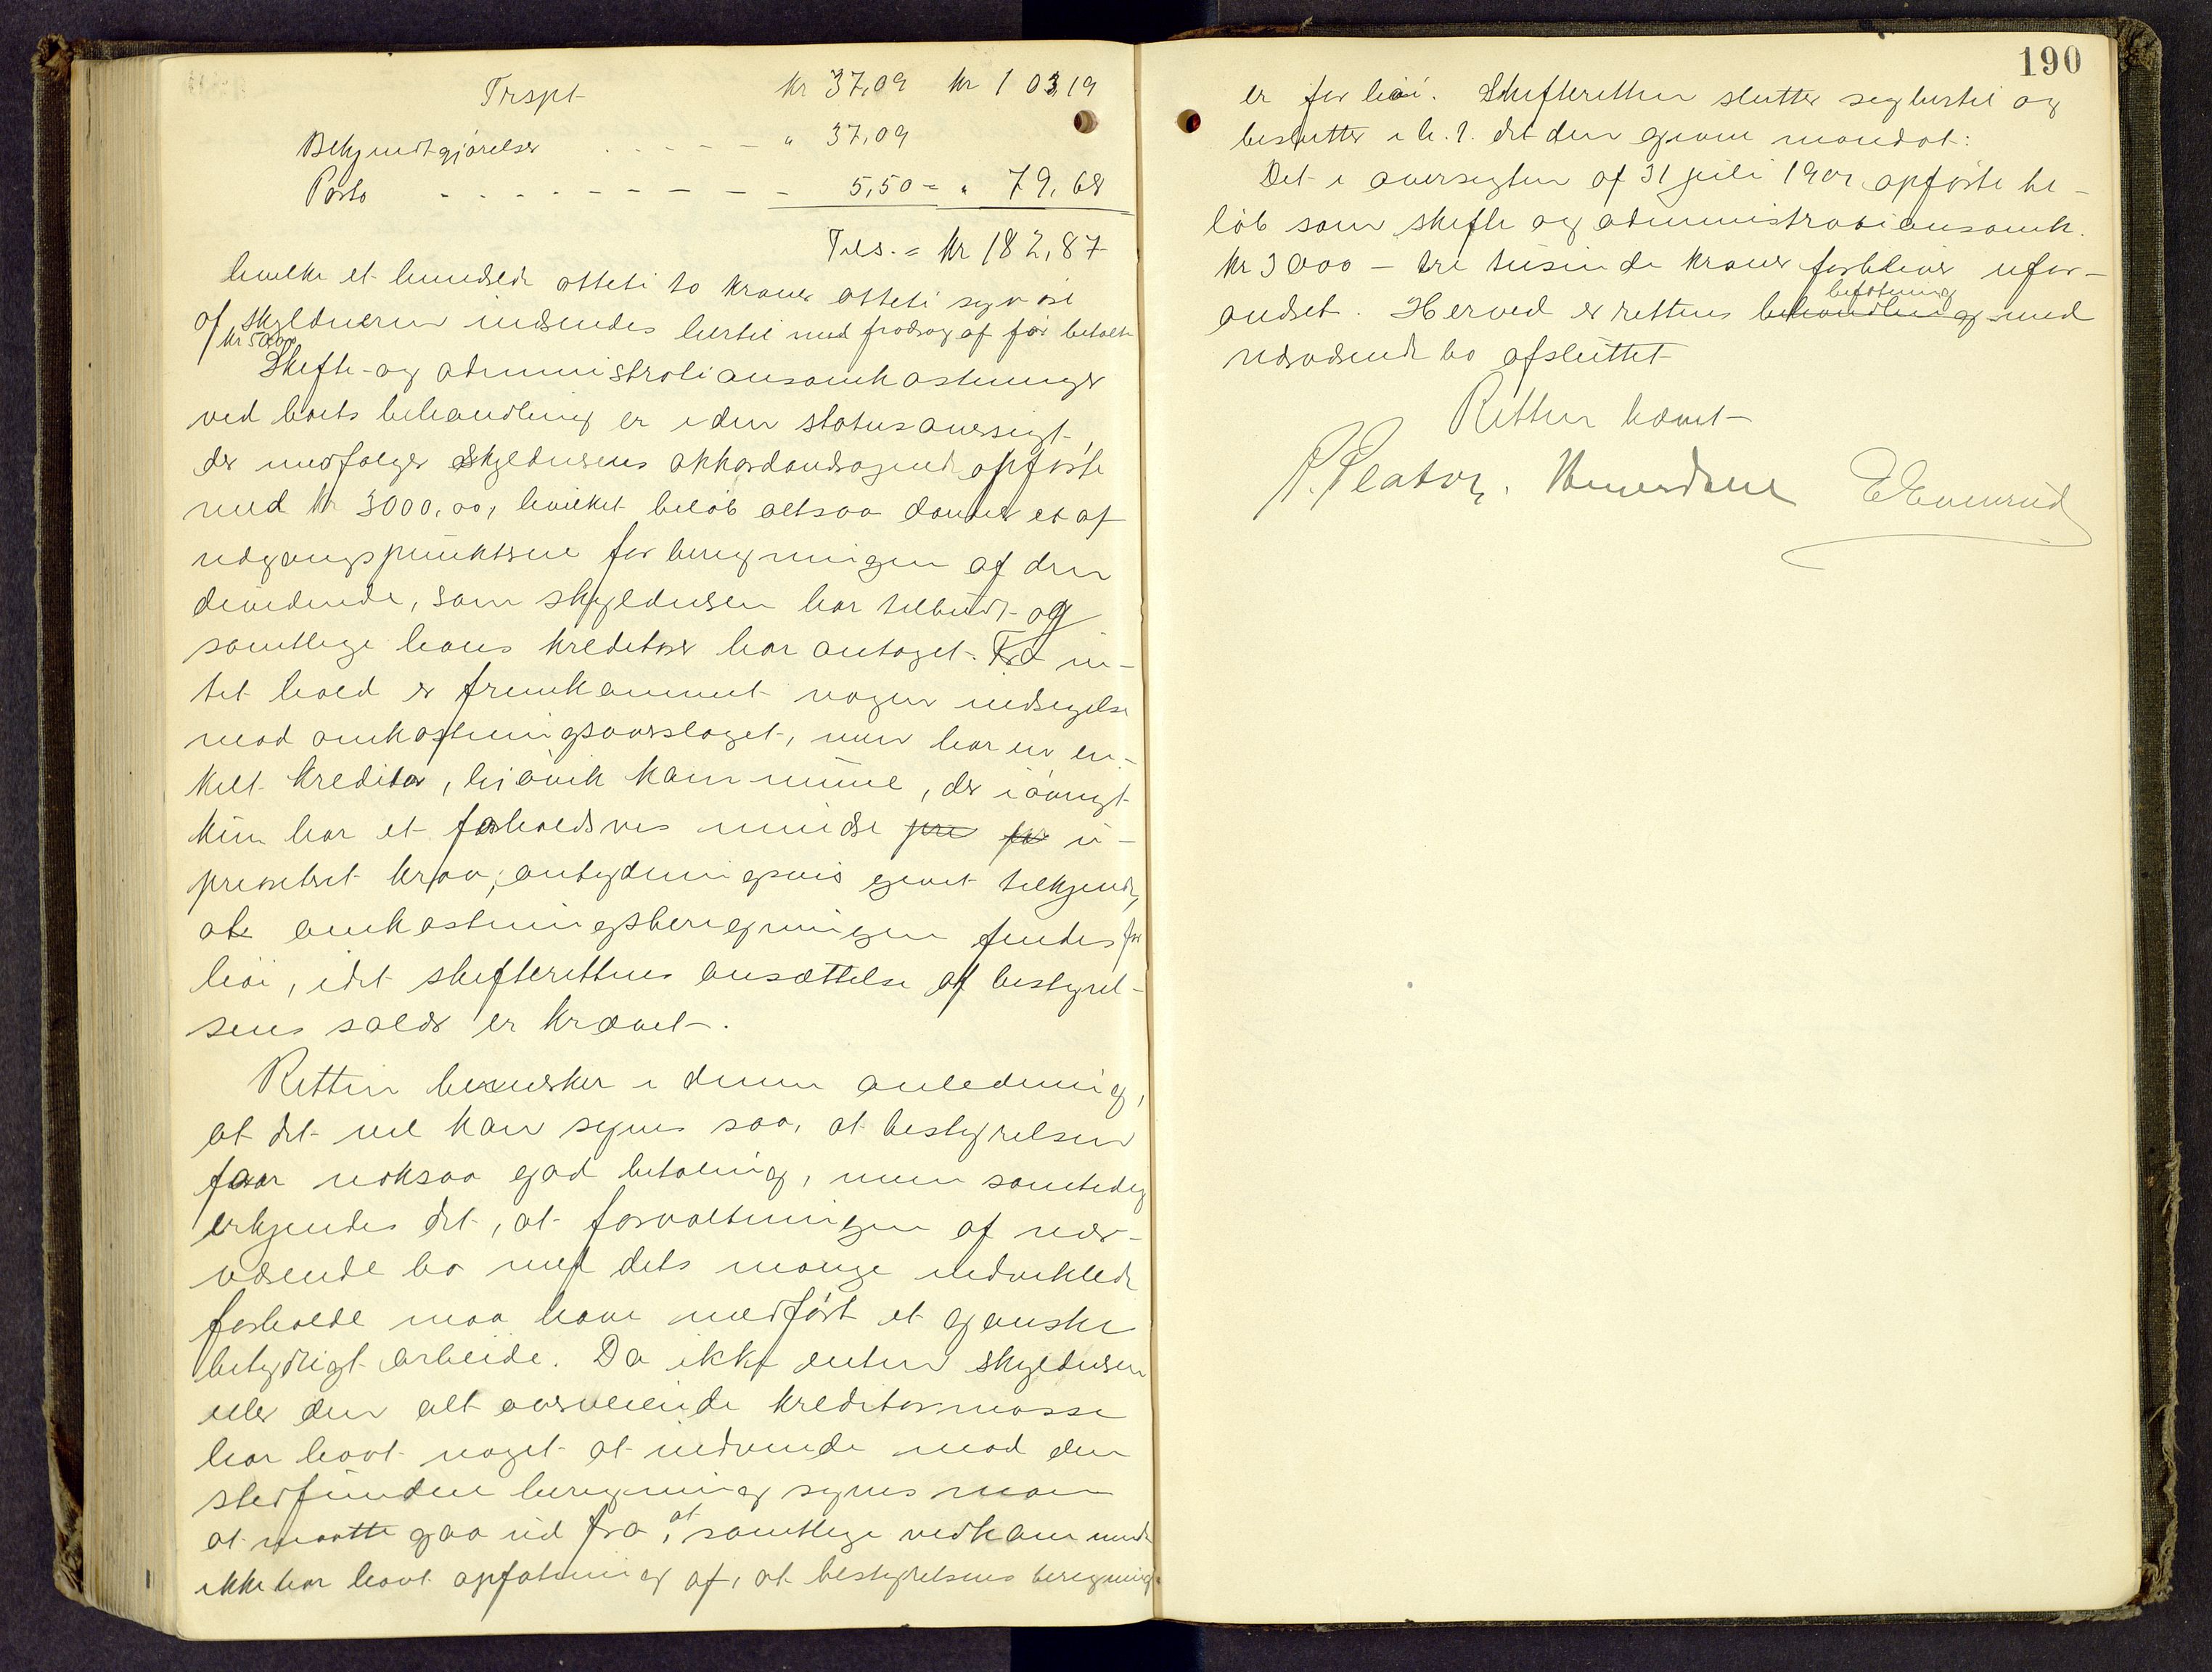 Trspt kr 37,09 kr 103,19
Bekjendtgjørelser . - - - - " 37,09
Porto - - - - - - - - - 5,50 = " 79,68
Tils. = kr 182,87
hvilke et hundrede otteti to kroner otteti syv øre
af skyldneren indsendes hertil med fradrag af før betalt
kr 50,00
Skifte- og administrationsomkostninger
ved boets behandling er i den statusoversigt,
der medfølger skyldnerens akkordandragende opført
med kr 3000,00, hvilket beløb altsaa danner et af
udgangspunkterne for beregningen af den
dividende, som skyldneren har tilbudt og
samtlige hans kreditorer har antaget. Fra in-
tet hold er fremkommet nogen indsigelse
mod omkostningsoverslaget, men har en en-
kelt kreditor, Gjøvik kommune, der iøvrigt
kun har et forholdsvis mindre pri for u-
prioritert krav, antydningsvis givet tilkjende,
at omkostningsberegningen findes for
høi, idet skifterettens ansættelse af bestyrel-
sens salær er krævet.
Retten bemerker i denne anledning,
at det vel kan synes saa, at bestyrelsen
faar noksaa god betaling, men samtidig
erkjendes det, at forvaltningen af nær-
værende bo med dets mange indviklede
forholde maa have medført et ganske
betydligt arbeide. Da ikke enten skyldneren
eller den alt overveiende kreditormasse
har havt noget at indvende mod den
stedfundne beregning synes man
at maatte gaa ud fra, at samtlige vedkommende
ikke har havt opfatning af, at bestyrelsens beregning
190
er for høi. Skifteretten slutter sig hertil og
beslutter i h. t. det den givne mandat:
Det i oversigten af 31 juli 1901 opførte be-
løb som skifte og administrationsomk.
kr 3000 - tre tusinde kroner forbliver ufor-
andret. Herved er rettens behandling befatning med
nærværende bo afsluttet
Retten hævet